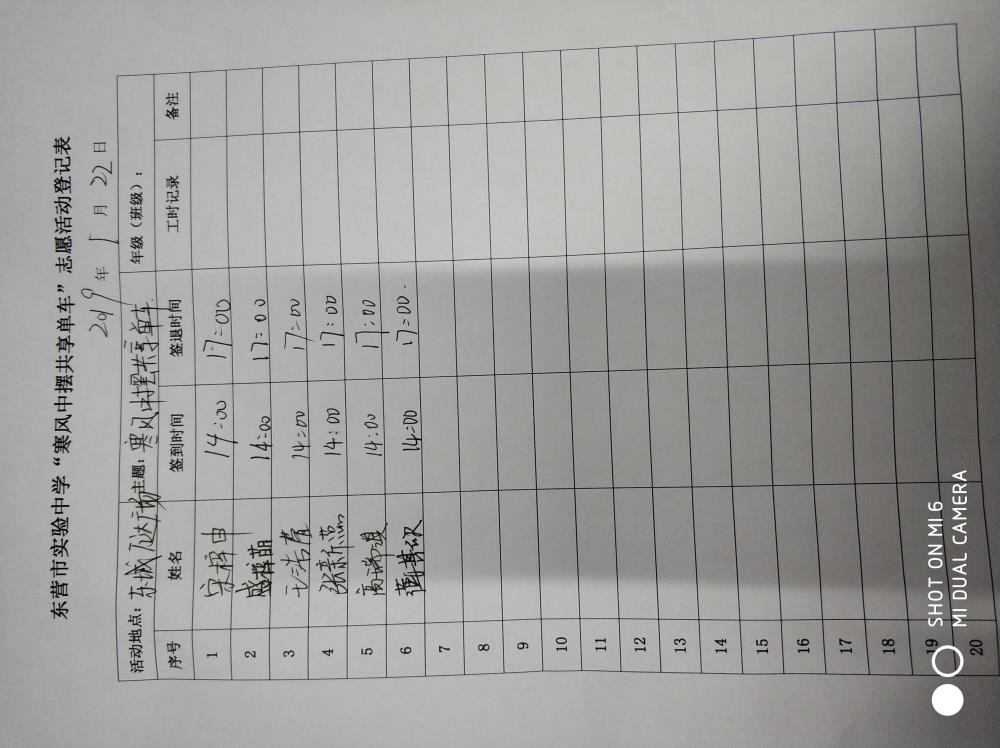 东营市实验中学“寒风中摆共享单车”志愿活动登记表
2019 年 1 月 22 日
活动地点：东城万达广场 主题：寒风中摆共享单车 年级（班级）：
序号 姓名 签到时间 签退时间 工时记录 备注
1 宋梓由 14:00 17:00
2 盛梓萌 14:00 17:00
3 14:00 17:00
4 14:00 17:00
5 14:00 17:00
6 14:00 17:00.
7
8
9
10
11
12
13
14
15
16
17
18
19
20
SHOT ON MI 6
MI DUAL CAMERA